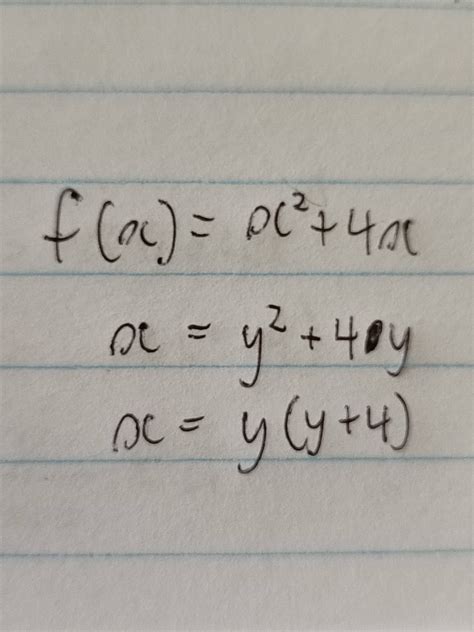 f(x) = x² + 4x
x = y² + 4y
x = y(y+4)